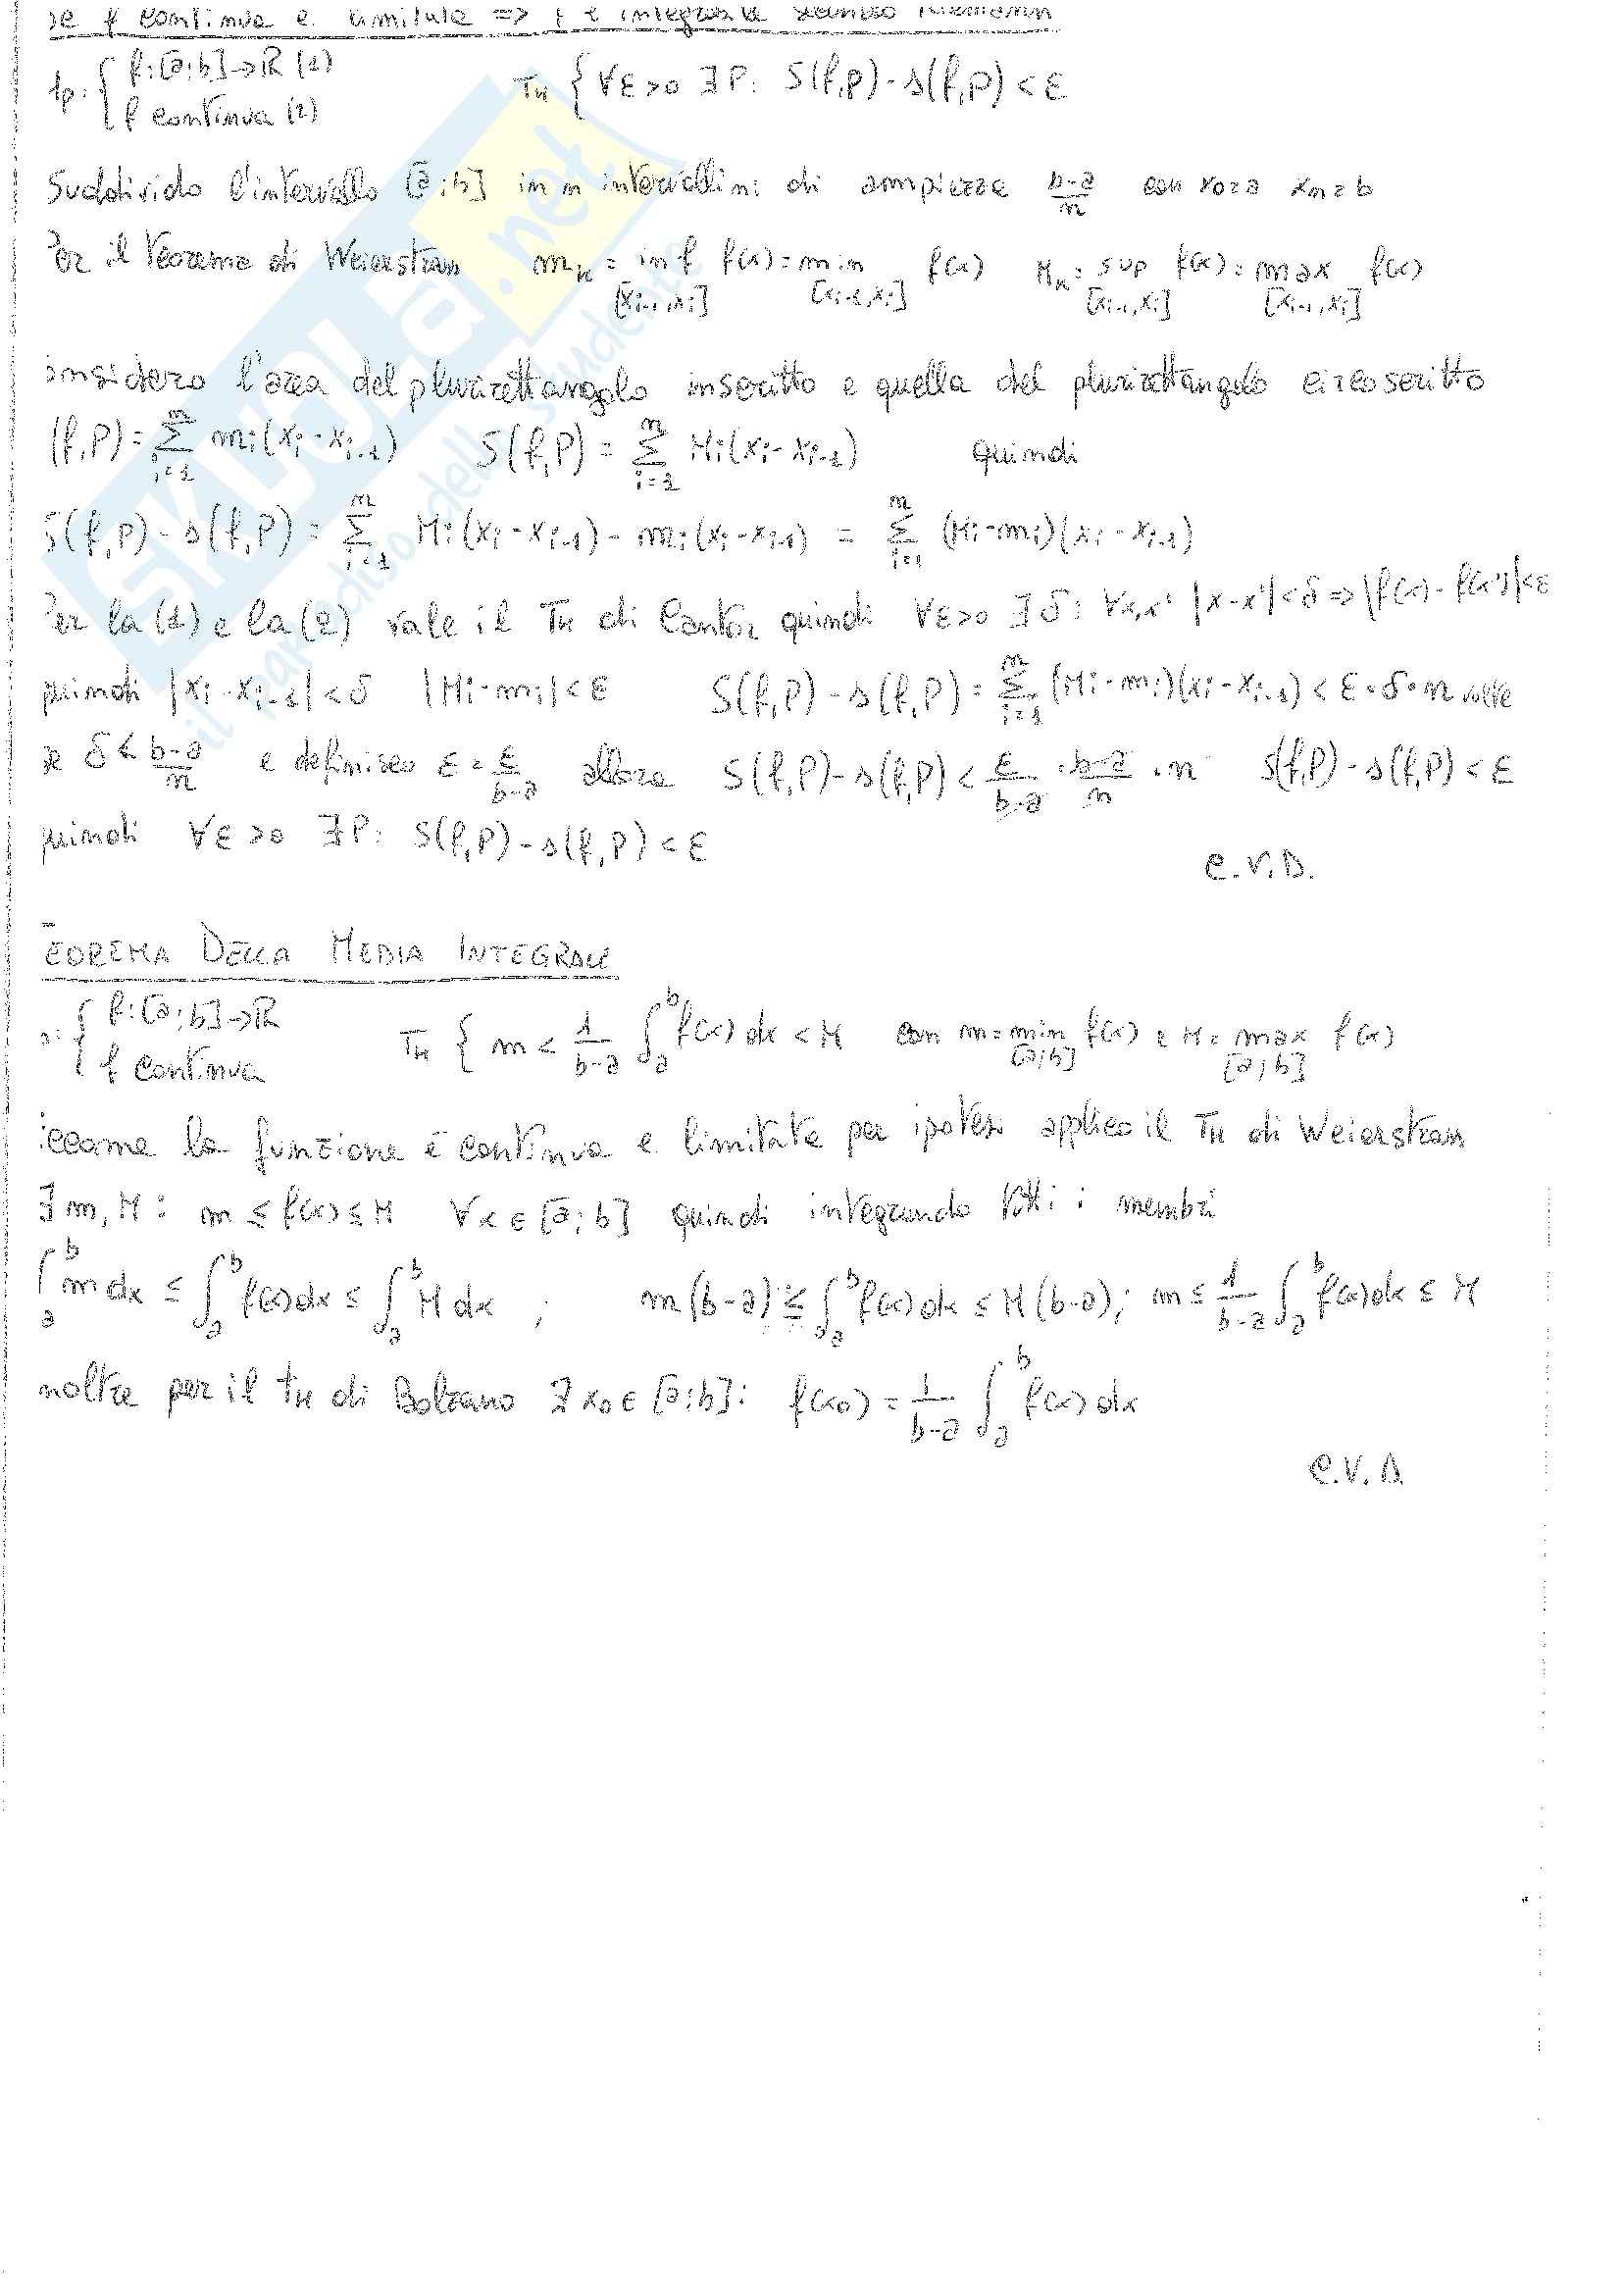 se f continua e limitata => f è integrabile secondo Riemann
Ip: { f: [a;b] → R (1)
f continua (2)
TH { ∀ε>0 ∃P: S(f,P) - s(f,P) < ε
Suddivido l'intervallo [a;b] in n intervallini di ampiezza (b-a)/n con x0=a xn=b
Per il teorema di Weierstrass mk = inf f(x) = min f(x) Mk = sup f(x) = max f(x)
[xi-1,xi] [xi-1,xi] [xi-1,xi] [xi-1,xi]
onsidero l'area del plurirettangolo inscritto e quella del plurirettangolo circoscritto
(f,P) = Σ_{i=1}^{n} mi(xi - xi-1) S(f,P) = Σ_{i=1}^{n} Mi(xi - xi-1) quindi
S(f,P) - s(f,P) = Σ_{i=1}^{n} Mi(xi - xi-1) - mi(xi - xi-1) = Σ_{i=1}^{n} (Mi - mi)(xi - xi-1)
Per la (1) e la (2) vale il TH di Cantor quindi ∀ε>0 ∃δ: ∀x,x' |x-x'|<δ => |f(x) - f(x')|<ε
quindi |xi - xi-1| < δ |Mi - mi| < ε S(f,P) - s(f,P) = Σ_{i=1}^{n} (Mi - mi)(xi - xi-1) < ε·δ·n volte
se δ < (b-a)/n e definisco ε = ε/(b-a) allora S(f,P) - s(f,P) < ε/(b-a) · (b-a)/n · n S(f,P) - s(f,P) < ε
quindi ∀ε>0 ∃P: S(f,P) - s(f,P) < ε
C.V.D.
TEOREMA DELLA MEDIA INTEGRALE
p: { f: [a;b] → R
f continua
TH { m < 1/(b-a) ∫_a^b f(x) dx < M con m = min f(x) e M = max f(x)
[a;b] [a;b]
iccome la funzione è continua e limitata per ipotesi applico il TH di Weierstrass
∃ m, M: m ≤ f(x) ≤ M ∀x ∈ [a;b] quindi integrando tutti i membri
∫_a^b m dx ≤ ∫_a^b f(x) dx ≤ ∫_a^b M dx ; m(b-a) ≤ ∫_a^b f(x) dx ≤ M(b-a); m ≤ 1/(b-a) ∫_a^b f(x) dx ≤ M
noltre per il TH di Bolzano ∃ x0 ∈ [a;b]: f(x0) = 1/(b-a) ∫_a^b f(x) dx
C.V.D.
SKUOLA.net
il paradiso dello studente